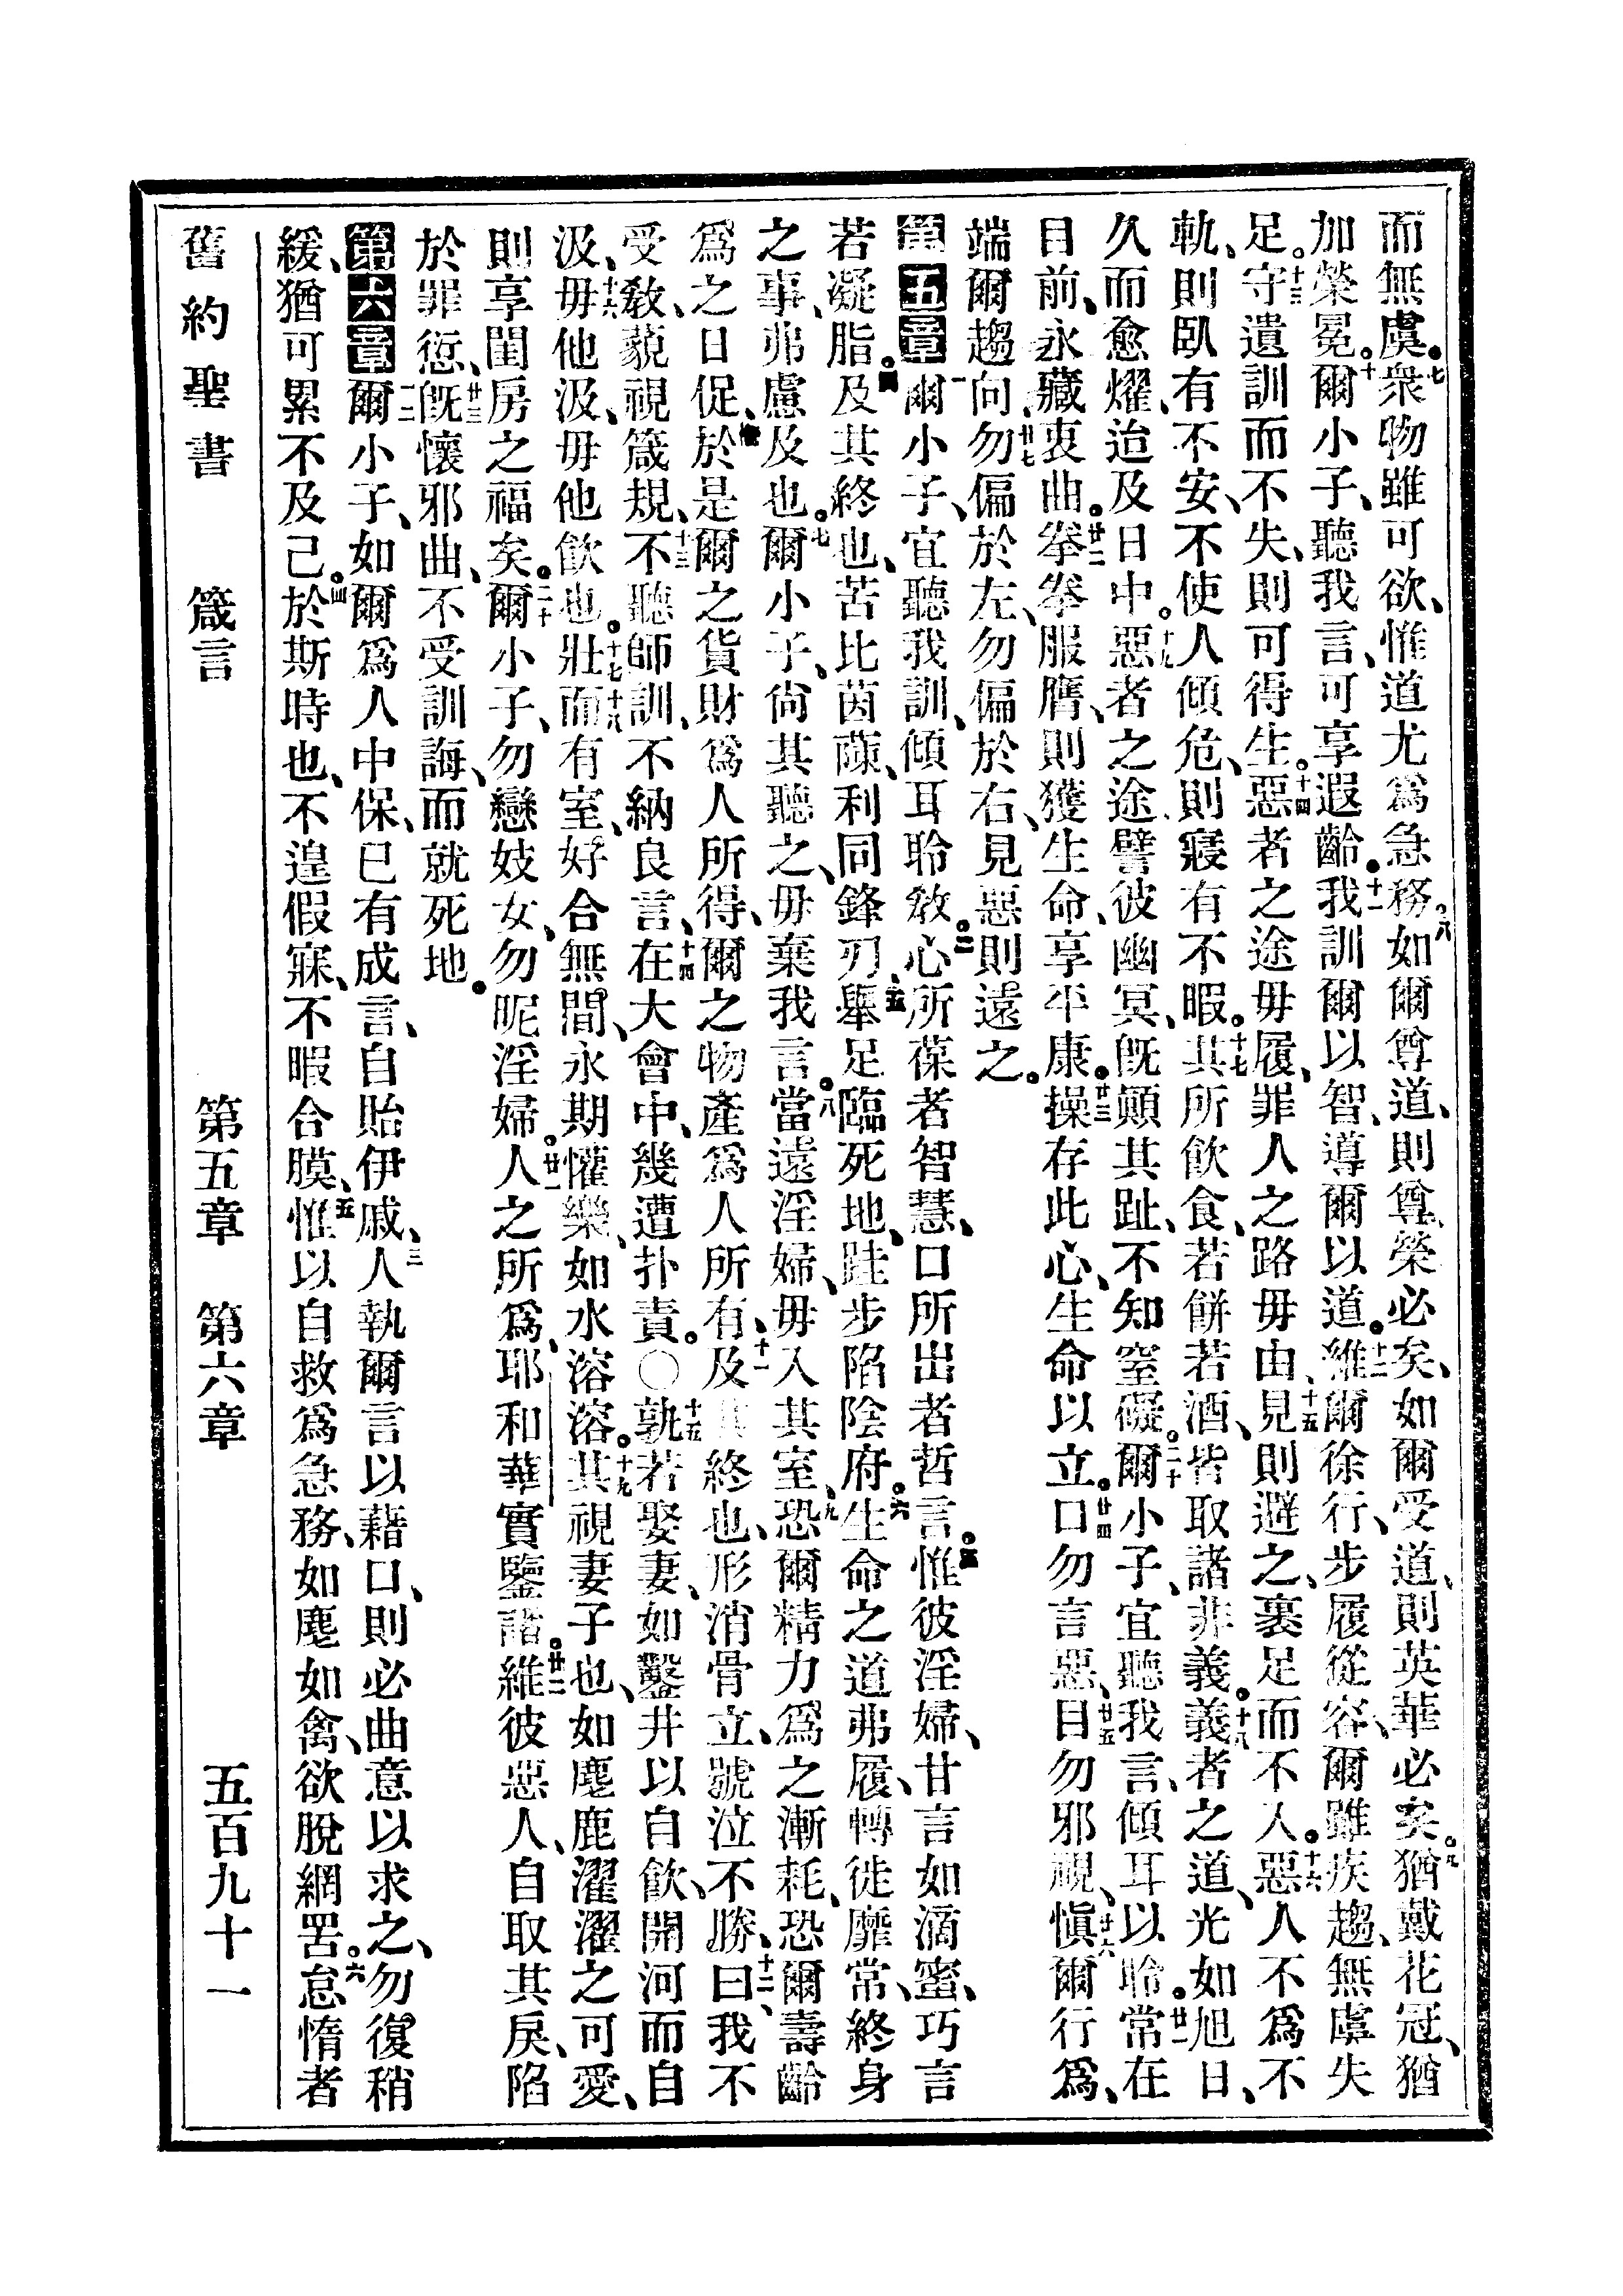 而無虞。七衆物雖可欲、惟道尤爲急務。八如爾尊道、則尊榮必矣、如爾受道、則英華必矣。九猶戴花冠、猶
加榮冕。十爾小子、聽我言、可享遐齡。十一我訓爾以智、導爾以道。十二維爾徐行、步履從容、爾雖疾趨、無虞失
足。十三守遺訓而不失、則可得生。十四惡者之途毋履、罪人之路毋由、十五見則避之、裹足而不入。十六惡人不爲不
軌、則臥有不安、不使人傾危、則寢有不暇。十七其所飲食、若餅若酒、皆取諸非義。十八義者之道、光如旭日、
久而愈燿、迨及日中。十九惡者之途、譬彼幽冥、旣顚其趾、不知窒礙。二十爾小子、宜聽我言、傾耳以聆。廿一常在
目前、永藏衷曲。廿二拳拳服膺、則獲生命、享平康。廿三操存此心、生命以立。廿四口勿言惡、廿五目勿邪視、廿六愼爾行爲、
端爾趨向、廿七勿偏於左、勿偏於右、見惡則遠之。
第五章一爾小子、宜聽我訓、傾耳聆敎。二心所葆者智慧、口所出者哲言。三惟彼淫婦、甘言如滴蜜、巧言
若凝脂。四及其終也、苦比茵蔯、利同鋒刃、五舉足臨死地、跬步陷陰府。六生命之道弗履、轉徙靡常、終身
之事、弗慮及也。七爾小子、尙其聽之、毋棄我言。八當遠淫婦、毋入其室、九恐爾精力爲之漸耗、恐爾壽齡
爲之日促、十於是爾之貨財爲人所得、爾之物產爲人所有、十一及其終也、形消骨立、號泣不勝、十二曰、我不
受敎、藐視箴規、十三不聽師訓、不納良言、十四在大會中、幾遭扑責。〇十五孰若娶妻、如鑿井以自飲、開河而自
汲、十六毋他汲、毋他飲也。十七壯而十八有室、好合無間、永期懽樂、如水溶溶。十九其視妻子也、如麀鹿濯濯之可愛、
則享閨房之福矣。二十爾小子、勿戀妓女、勿昵淫婦。廿一人之所爲、耶和華實鑒諸。廿二維彼惡人、自取其戾、陷
於罪愆、廿三旣懷邪曲、不受訓誨、而就死地。
第六章一二爾小子、如爾爲人中保、已有成言、自貽伊戚、三人執爾言以藉口、則必曲意以求之、勿復稍
緩、猶可累不及己。四於斯時也、不遑假寐、不暇合膜、五惟以自救爲急務、如麀如禽、欲脫網罟。六怠惰者
舊約聖書　箴言　第五章　第六章　五百九十一